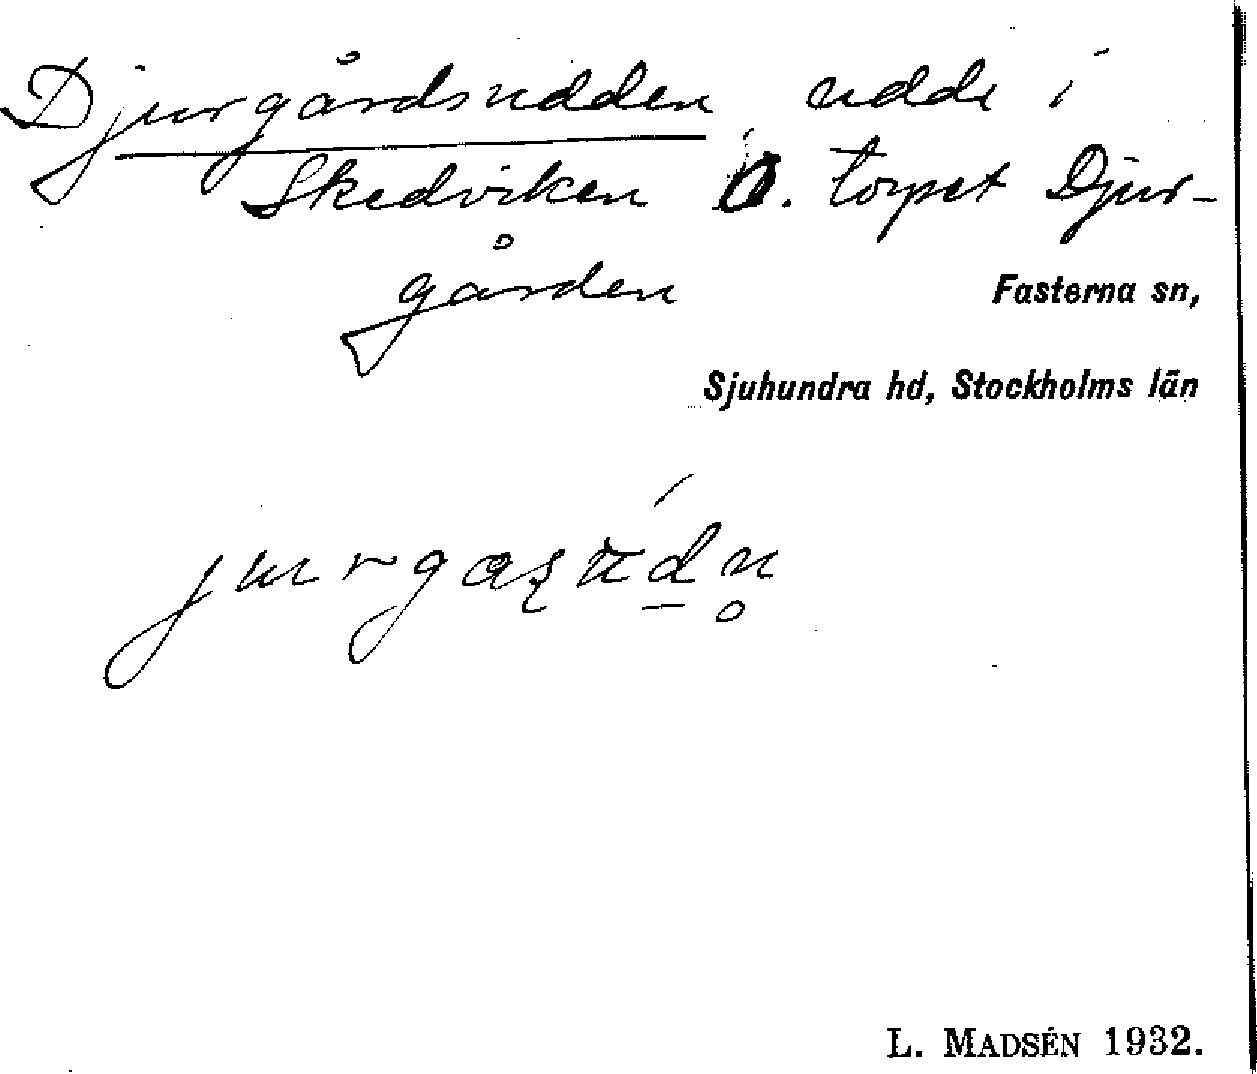 Djurgårdsudden udde i
Skedviken Ö. torpet Djur-
gården
Fasterna sn,
Sjuhundra hd, Stockholms län
L. MADSÉN 1932.